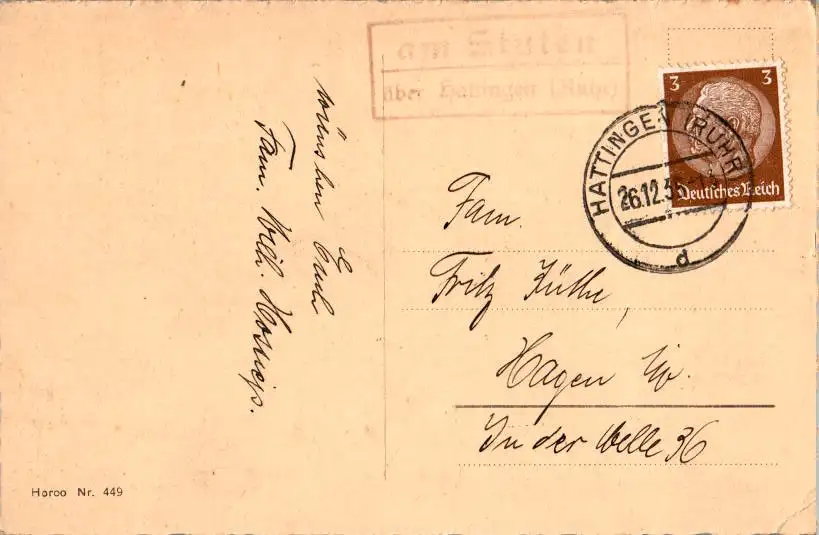 am Stuten
über Hattingen (Ruhr)
3 3
Deutsches Reich
HATTINGEN (RUHR)
26.12.3
d
wünschen Euch
Fam. Wilh.
Fam.
Fritz Küthe,
Hagen W.
In der Welle 36
Horco Nr. 449